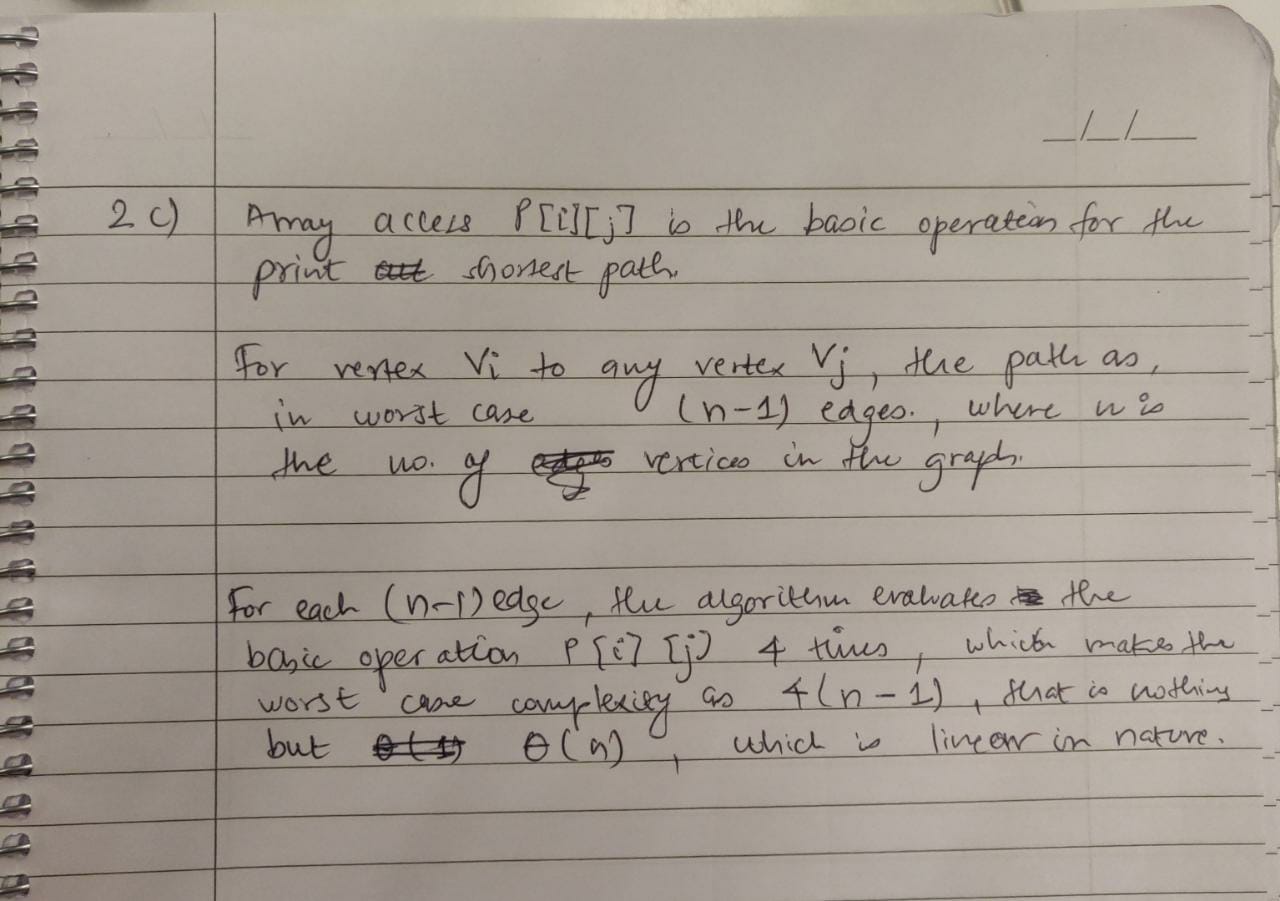 _/_/__
2 c) Array access P[i][j] is the basic operation for the
print shortest path.
For vertex Vi to any vertex Vj, the path as,
in worst case (n-1) edges., where n is
the no. of vertices in the graph.
For each (n-1) edge, the algorithm evaluates the
basic operation P[i][j] 4 times, which makes the
worst case complexity as 4(n-1), that is nothing
but θ(n), which is linear in nature.